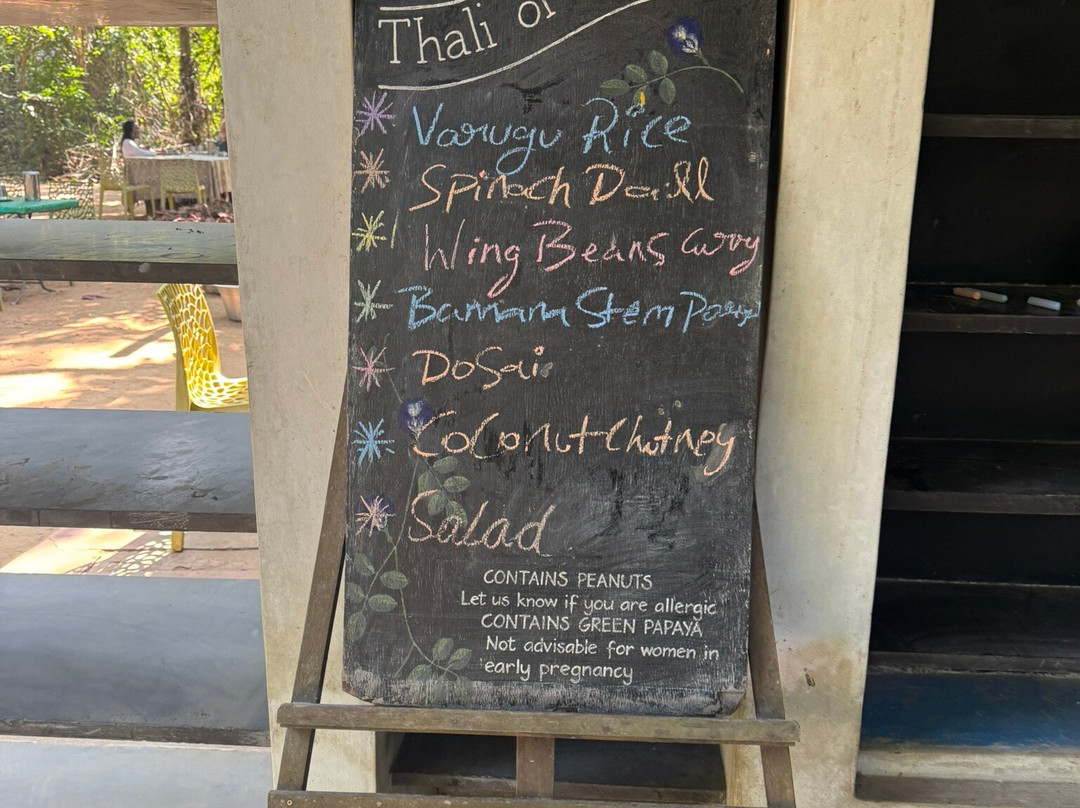 Thali of
Varugu Rice
Spinach Daall
Wing Beans Curry
Bannana Stem
Dosai
Coconut Chutney
Salad
CONTAINS PEANUTS
Let us know if you are allergic
CONTAINS GREEN PAPAYA
Not advisable for women in
early pregnancy